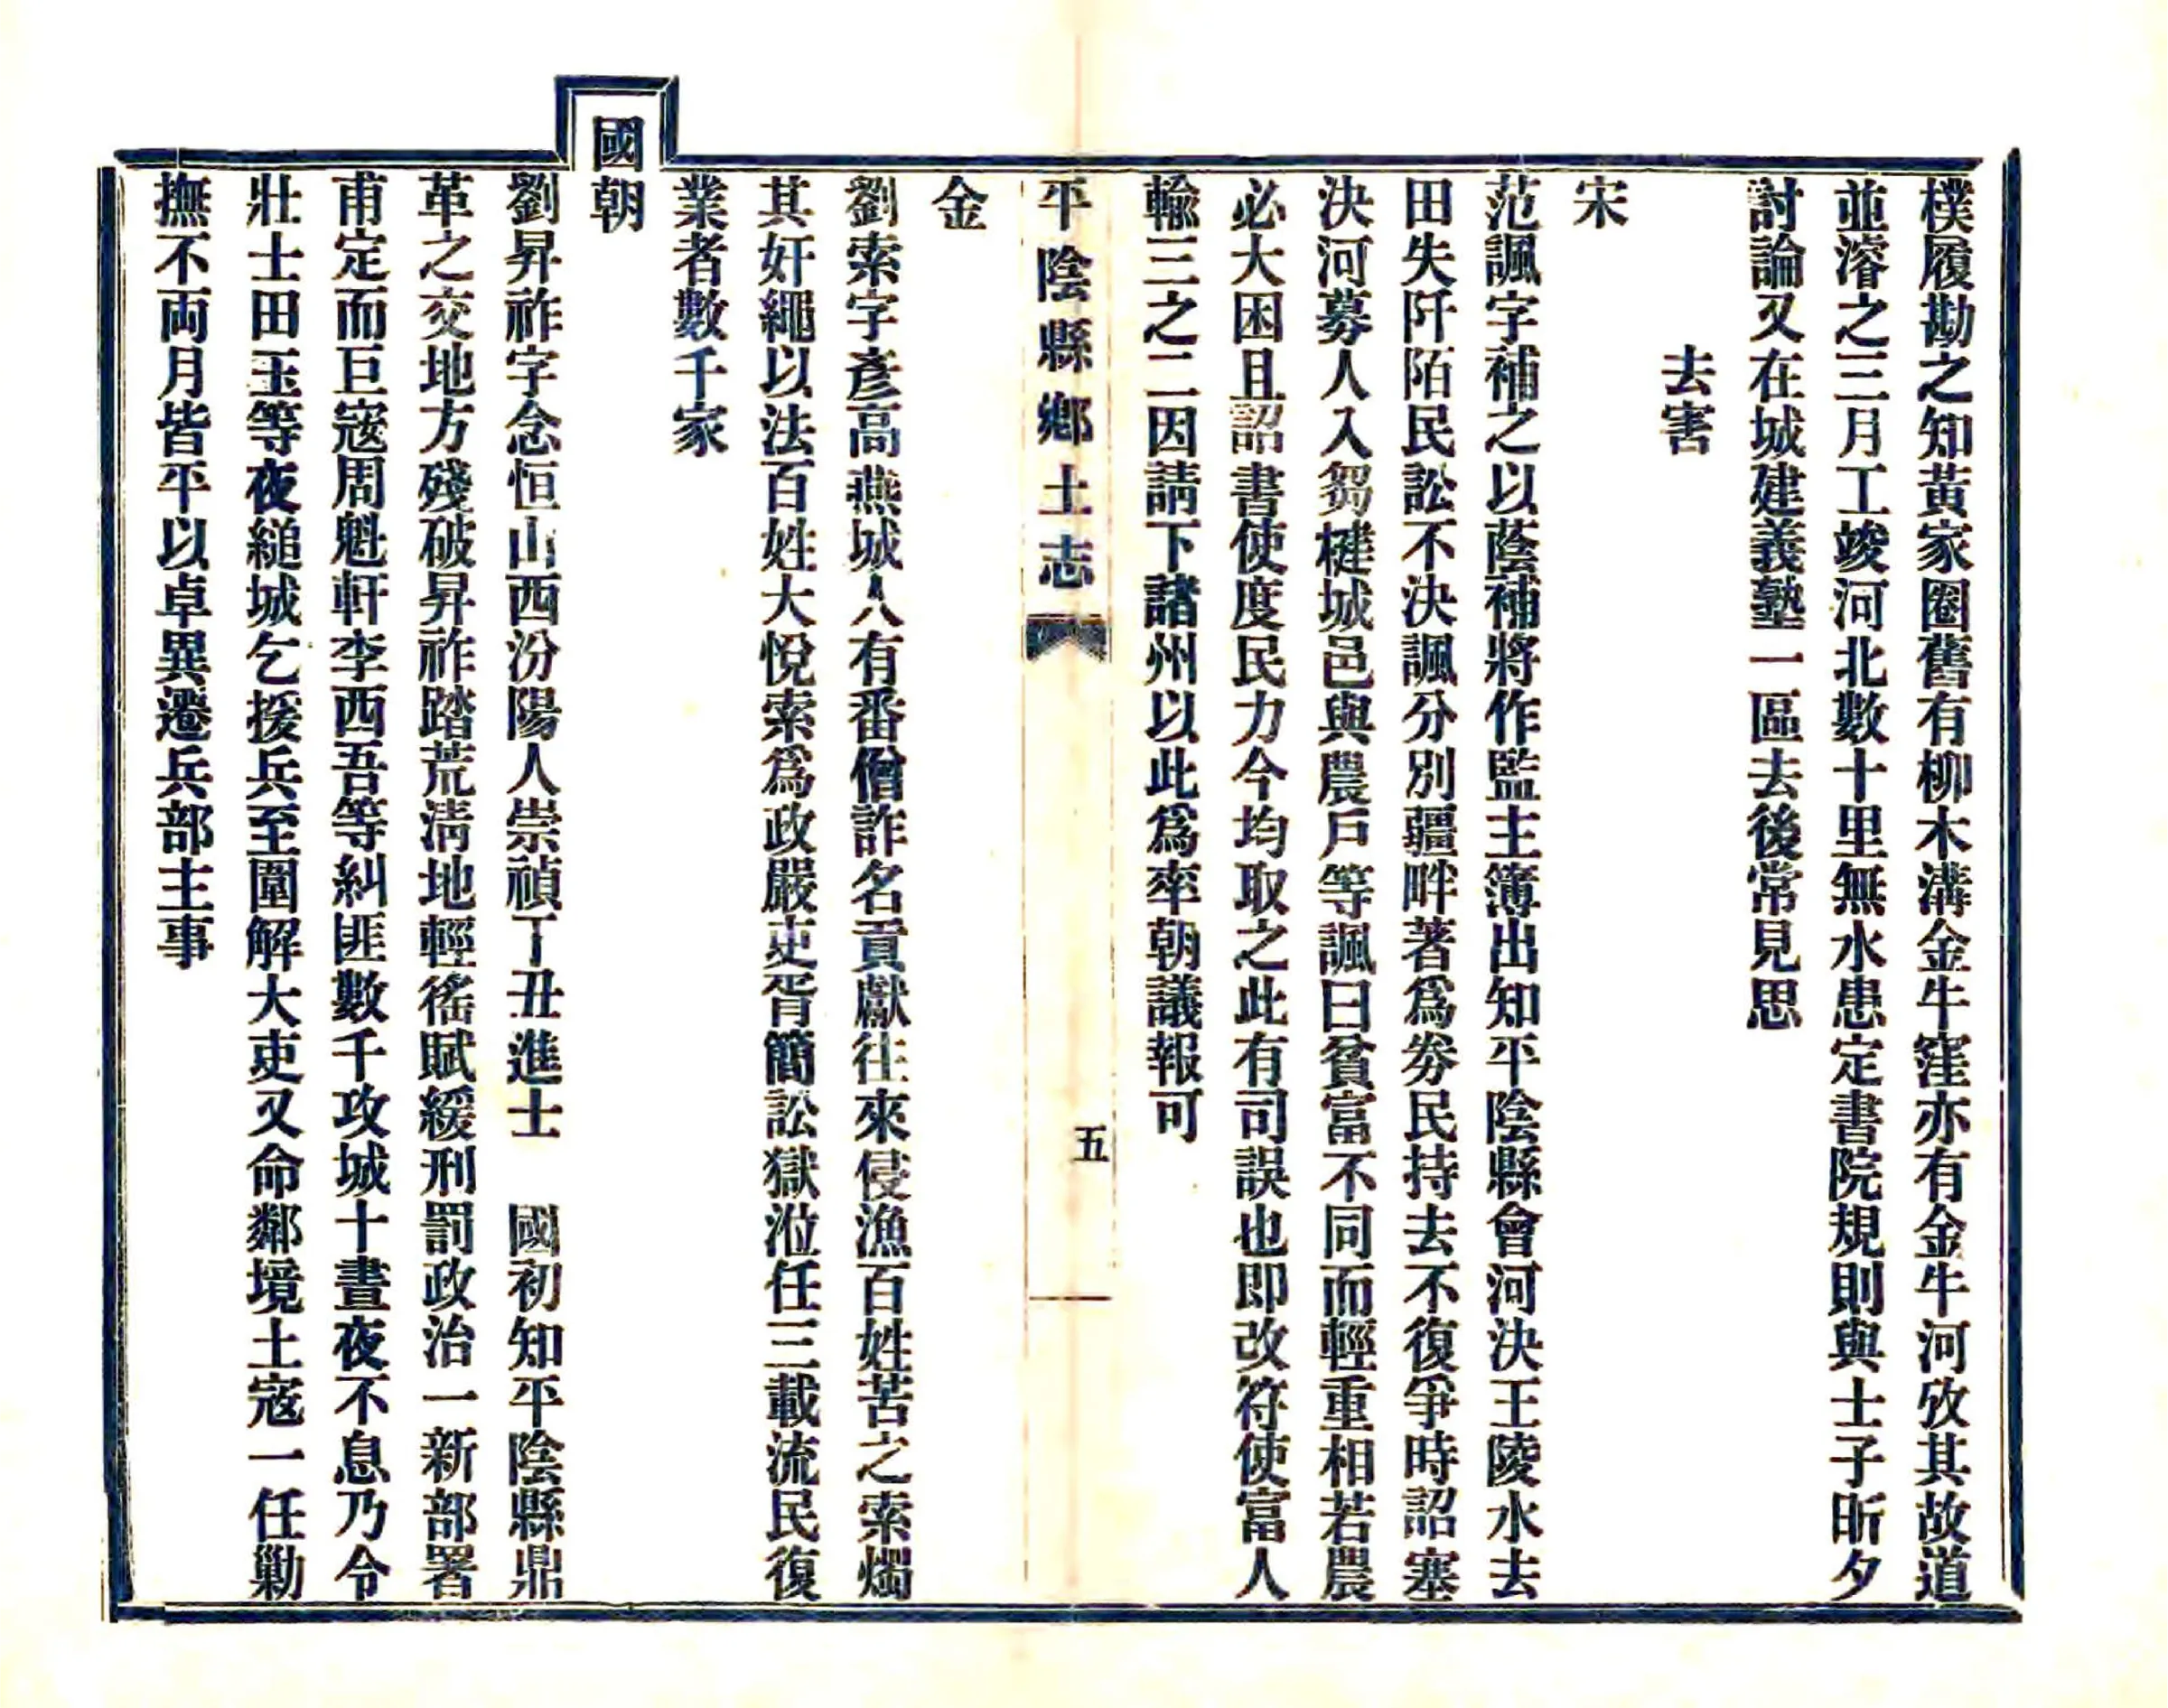 樸履勘之知黃家圈舊有柳木溝金牛窪亦有金牛河攷其故道
並濬之三月工竣河北數十里無水患定書院規則與士子昕夕
討論又在城建義塾一區去後常見思
去害
宋
范諷字補之以蔭補將作監主簿出知平陰縣會河決王陵水去
田失阡陌民訟不決諷分別疆畔著爲劵民持去不復爭時詔塞
決河募人入芻楗城邑與農戶等諷曰貧富不同而輕重相若農
必大困且詔書使度民力今均取之此有司誤也即改符使富人
輸三之二因請下諸州以此爲率朝議報可
平陰縣鄉土志
五
金
劉索字彥高燕城人有番僧詐名貢獻往來侵漁百姓苦之索燭
其奸繩以法百姓大悅索爲政嚴吏胥簡訟獄涖任三載流民復
業者數千家
國朝
劉昇祚字念恒山西汾陽人崇禎丁丑進士 國初知平陰縣鼎
革之交地方殘破昇祚踏荒淸地輕徭賦緩刑罰政治一新部署
甫定而巨寇周魁軒李西吾等糾匪數千攻城十晝夜不息乃令
壯士田玉等夜縋城乞援兵至圍解大吏又命鄰境土寇一任勦
撫不両月皆平以卓異遷兵部主事